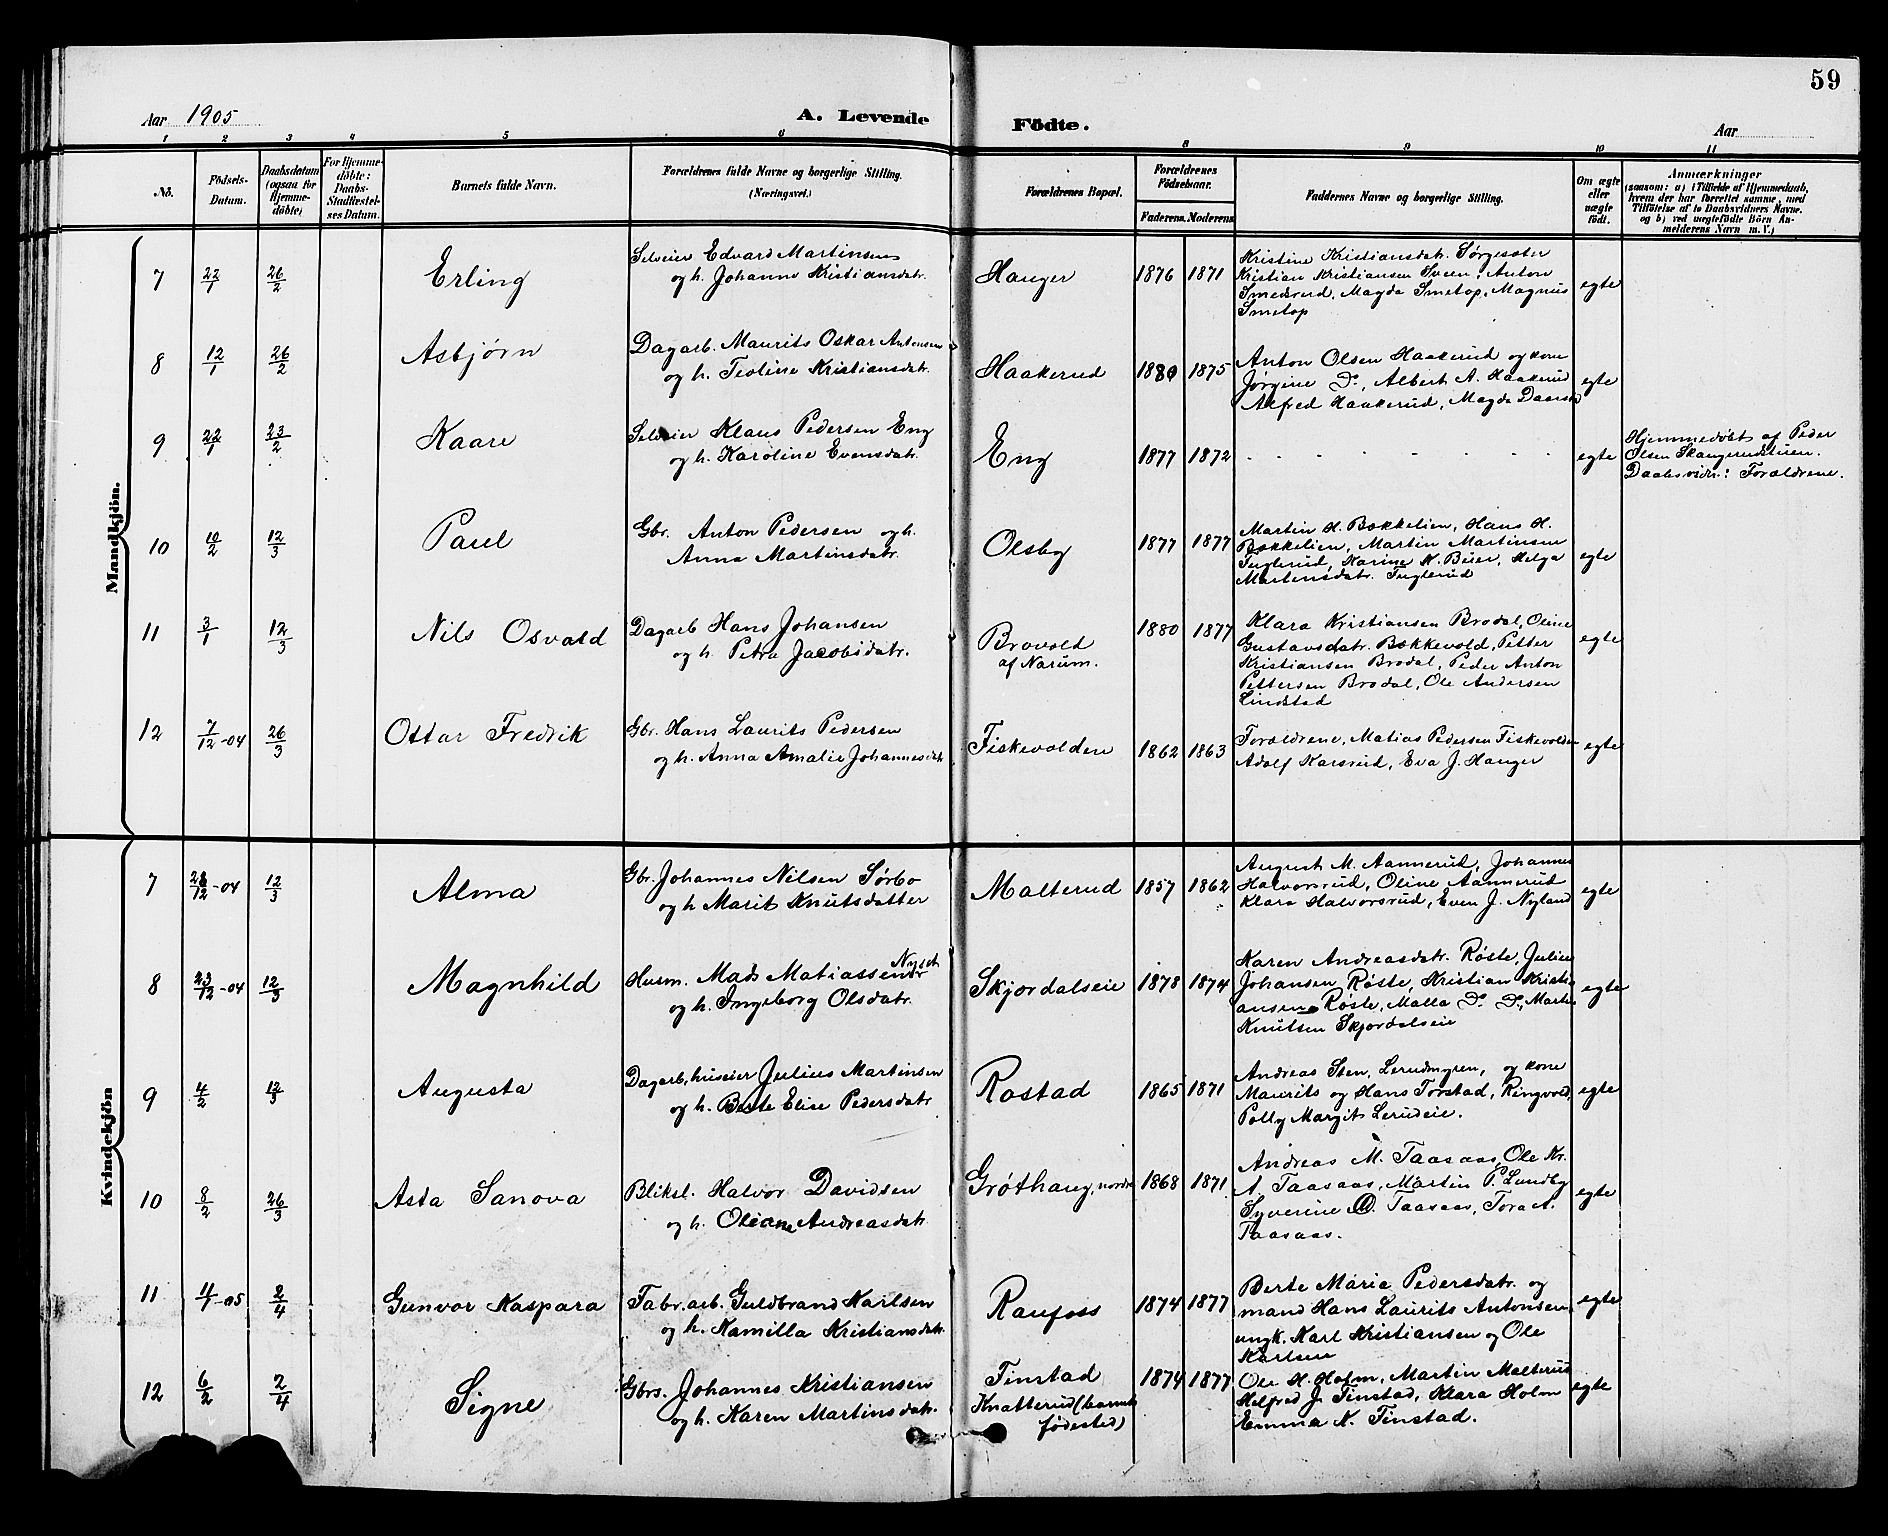 59
Aar 1905
A. Levende Födte.
Aar
1 2 3 4 5 6 8 9 10 11
No.
Födsels-Datum.
Daabsdatum (ogsaa for Hjemmedöbte)
For Hjemmedöbte: Daabs-Stadfestelses Datum.
Barnets fulde Navn.
Forældrenes fulde Navne og borgerlige Stilling. (Næringsvei.)
Forældrenes Bopæl.
Forældrenes Födselsaar.
Faderens. Moderens.
Faddernes Navne og borgerlige Stilling.
Om ægte eller uægte födt.
Anmærkninger
(saasom: a) i Tilfælde af Hjemmedaab, hvem der har forrettet samme, med Tilföielse af to Daabsvidners Navne. og b) ved uægtefödte Börn Anmelderens Navn m. V.)
Mandkjön.
7 22/1 26/2 Erling
Selveier Edvard Martinsen
og h. Johanne Kristiansdatr.
Hanger 1876 1871
Kristine Kristiansdatr. Sørgesster
Kristian Kristiansen Sveen, Anton
Smedsrud, Magda Smetop, Magnus
Smetop
egte
8 12/1 26/2 Asbjørn
Dagarb. Maurits Oskar Antonsen
og h. Teoline Kristiansdatr.
Haakerud 1880 1875
Anton Olsen Haakerud og kone
Jørgine Do., Albert A. Haakerud
Alfred Haakerud, Magda
egte
9 22/1 23/2 Kaare
Selveier Klaus Pedersen Eng
og h. Karoline Evensdatr.
Eng 1877 1872
- - - - - - -
egte
Hjemmedøbt af Peder
Olsen Skangerudstuen.
Daabsvidn.: Forældrene.
10 10/2 12/3 Paul
Gbr. Anton Pedersen og h.
Anna Martinsdatr.
Olsby 1877 1877
Martin H. Bækkelien, Hans H.
Bækkelien, Martin Martinsen
Fuglerud, Karine K. Beier, Helga
Martensdatr. Fuglerud
egte
11 3/1 12/3 Nils Osvald
Dagarb Hans Johansen
og h. Petra Jacobsdatr.
Brovold
af Narum.
1880 1877
Klara Kristiansen Brodal, Oline
Gustavsdatr. Bækkevold, Petter
Kristiansen Brodal, Peder Anton
Pettersen Brodal, Ole Andersen
Lindstad
egte
12 7/12-04 26/3 Ottar Fredrik
Gbr. Hans Laurits Pedersen
og h. Anna Amalie Johannesdatr.
Fiskevolden 1862 1863
Forældrene, Matias Pedersen Fiskevolden
Adolf Karsrud, Eva J. Hanger
egte
Kvindekjön
7 28/12-04 12/3 Alma
Gbr. Johannes Nilsen Sørbo
og h Marit Knutsdatter
Malterud 1857 1862
August M. Aannerud, Johannes
Halvorsrud, Oline Aannerud
Klara Halvorsrud, Even J. Nyland
egte
8 23/12-04 12/3 Magnhild
Nyset
Husm. Mads Matiassen
og h. Ingeborg Olsdatr.
Skjordalseie 1878 1874
Karen Andreasdatr. Røste, Julius
Johansen Røste, Kristian Kristi-
ansen Røste, Malla Do. Do., Martin
Knutsen Skjordalseie
egte
9 4/2 12/3 Augusta
Dagarb, huseier Julius Martinsen
og h. Berte Elise Pedersdatr.
Rostad 1865 1871
Andreas Sten, Lerudmyren, og kone
Maurits og Hans Torstad, Ringvold,
Polly Margit Lerudeie.
egte
10 8/2 26/3 Asta Sanova
Bliksl. Halvor Davidsen
og h. Oleane Andreasdatr.
Grøthaug, nordre 1868 1871
Andreas M. Taasaas, Ole Kr.
A. Taasaas, Martin P. Lundby
Syverine Taasaas, Tora A.
Taasaas.
egte
11 4/1-05 2/4 Gunvor Kaspara
Fabr. arb. Guldbrand Karlsen
og h. Kamilla Kristiansdatr.
Raufoss 1874 1877
Berte Maria Pedersdatr. og
mand Hans Laurits Antonsen
ungk. Karl Kristiansen og Ole
Karlsen
egte
12 6/2 2/4 Signe
Gbrs. Johannes Kristiansen
og h. Karen Martinsdatr.
Finstad
Knatterud (barnets
fødested)
1874 1877
Ole H. Holm, Martin Malterud
Helfred J. Finstad, Klara Holm
Emma N. Finstad.
egte